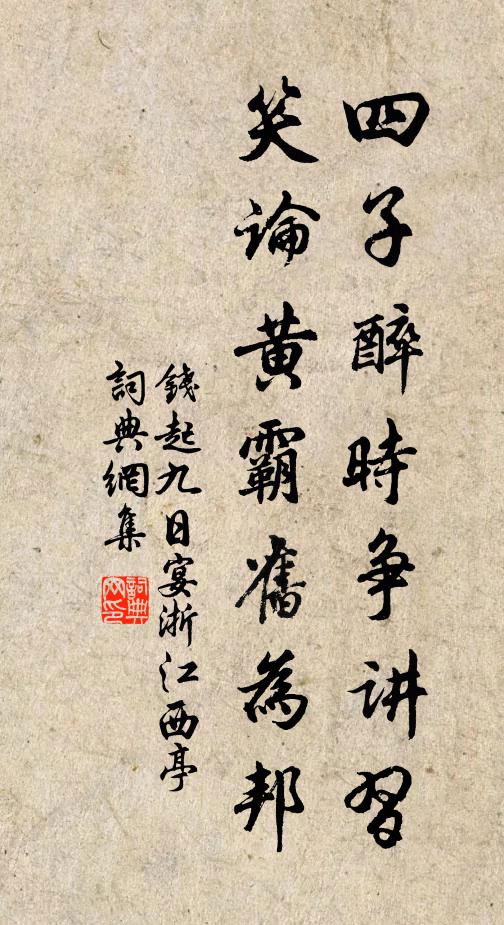 四子醉時争讲習
笑論黄霸舊為邦
錢起九日宴浙江西亭
詞典網集
詞典網印